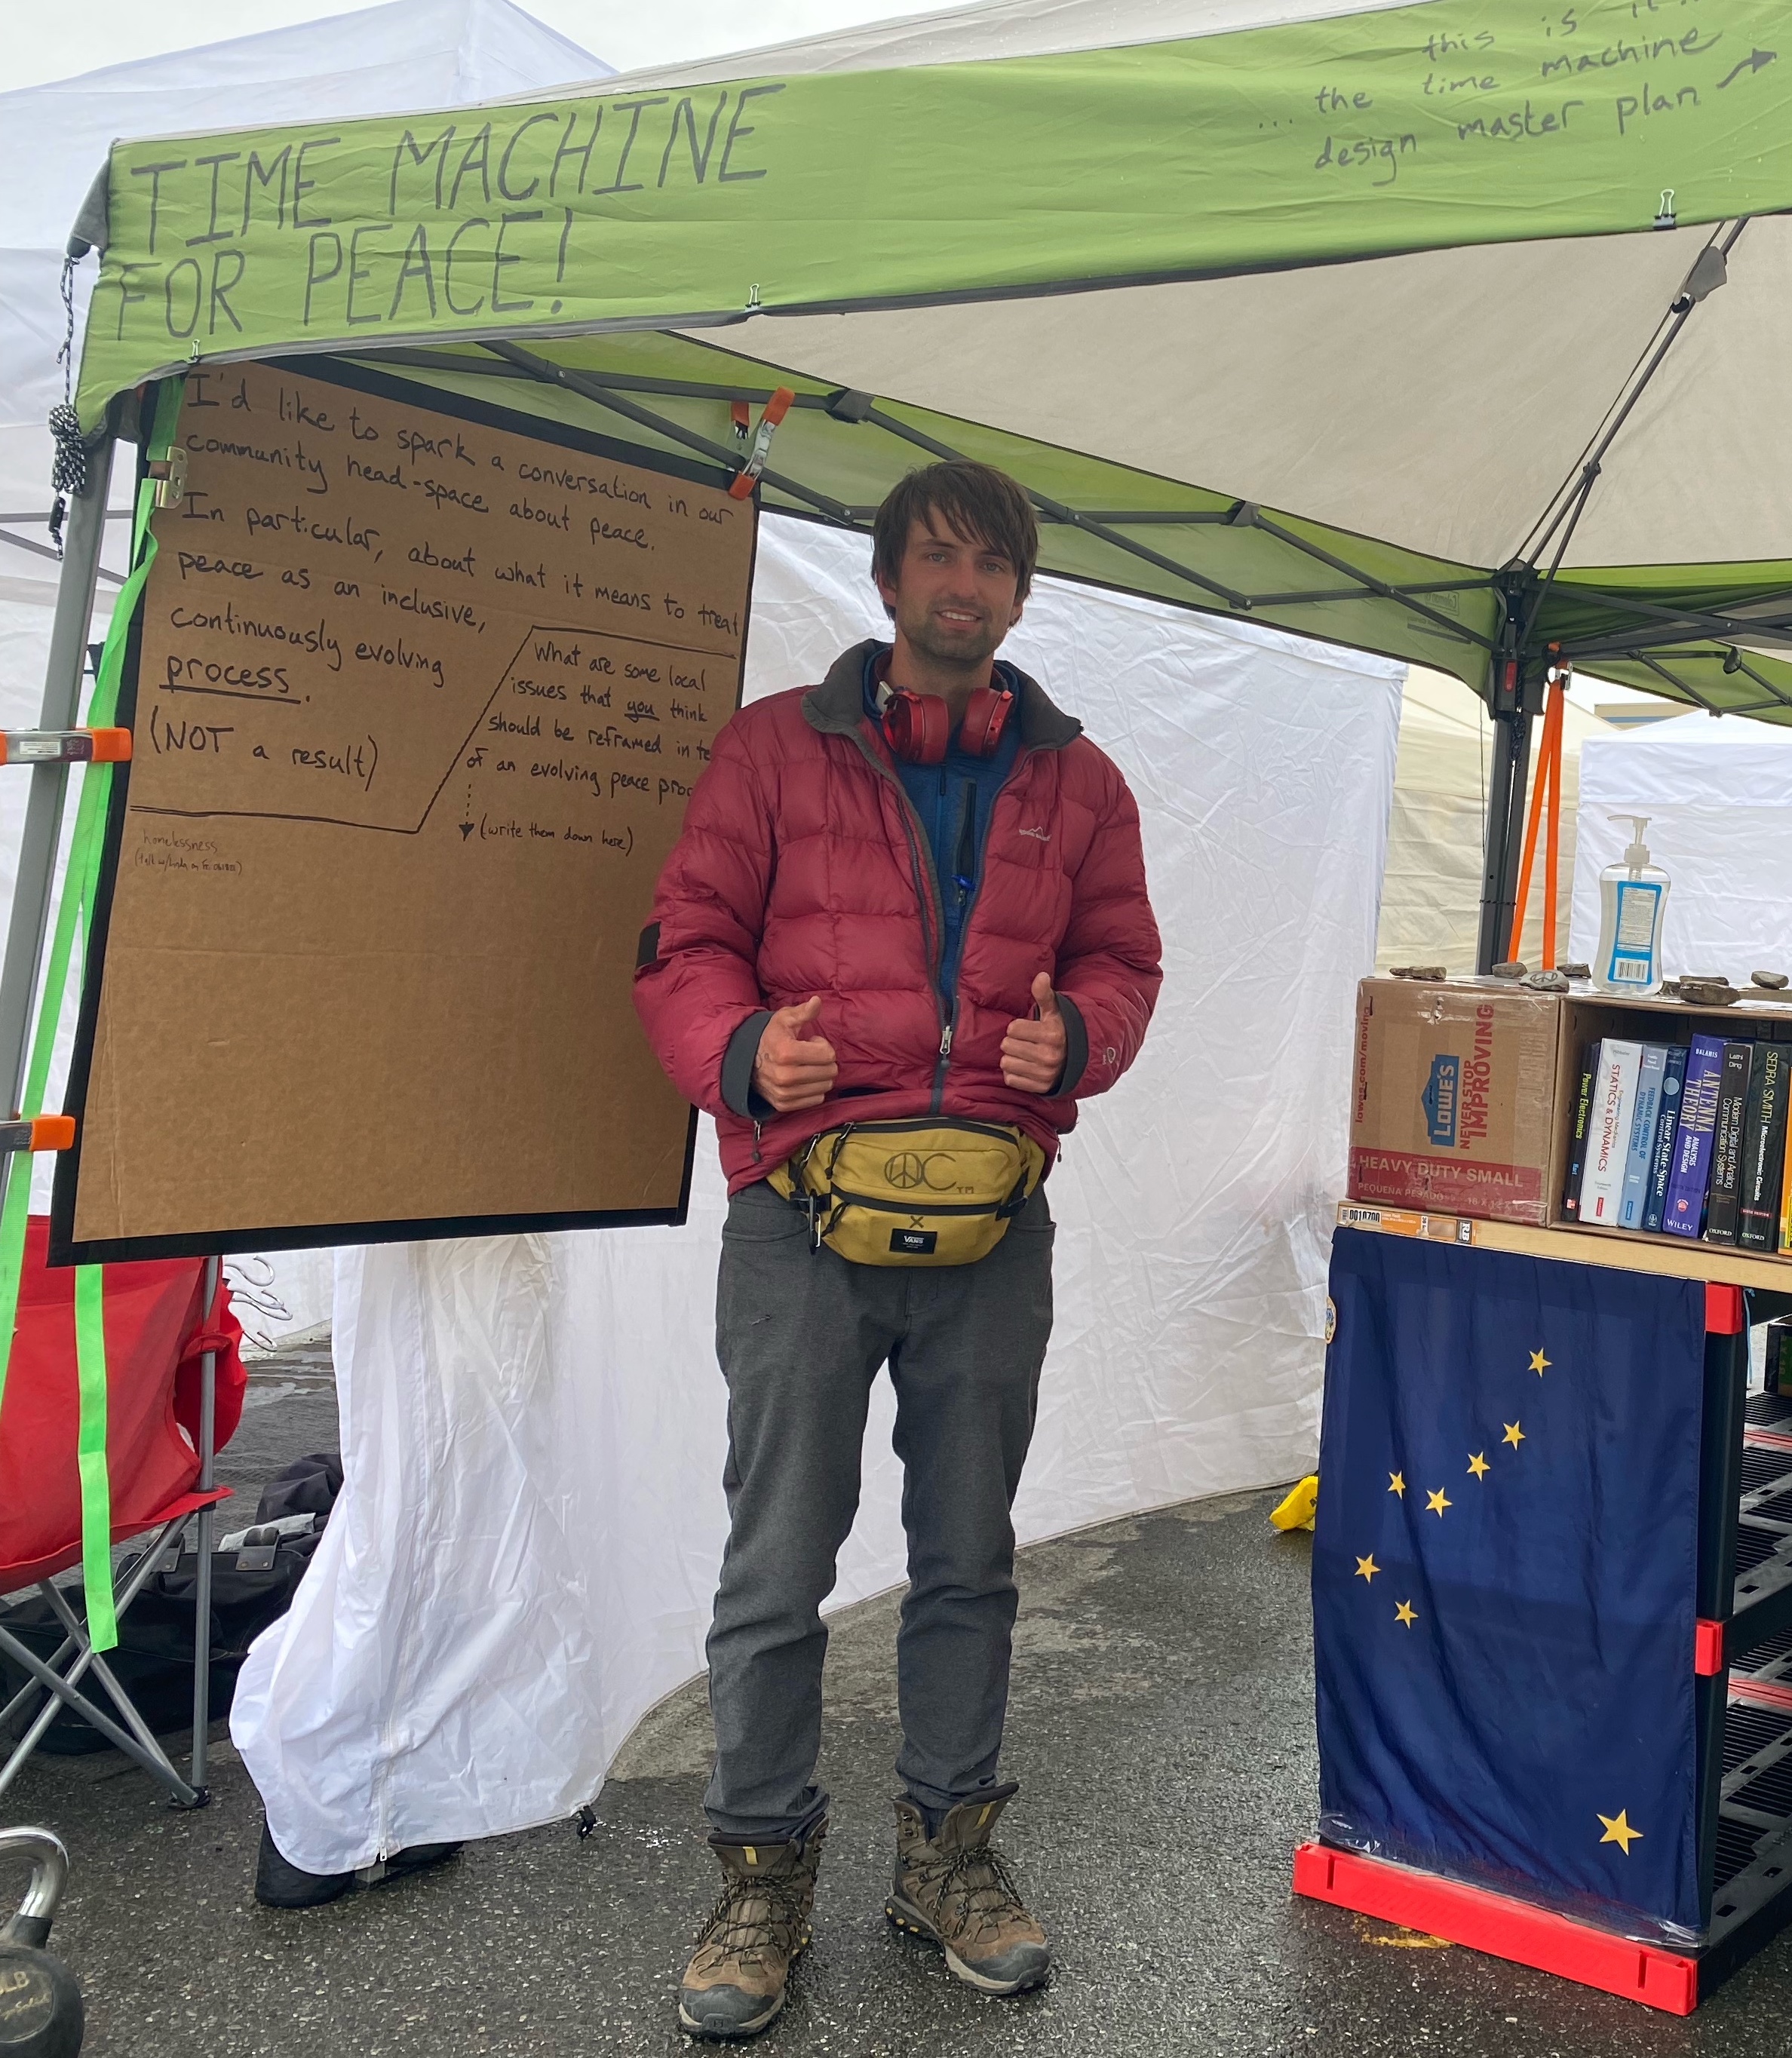 TIME MACHINE
FOR PEACE!
this is
... the time machine
design master plan
I'd like to spark a conversation in our
community head-space about peace.
In particular, about what it means to treat
peace as an inclusive,
continuously evolving
process.
(NOT a result)
What are some local
issues that you think
should be reframed in te
of an evolving peace proc
(write them down here)
homelessness
C™
VANS
lowes.com/moving
LOWE'S
NEVER STOP
IMPROVING
HEAVY DUTY SMALL
PEQUEÑA PESADO
Power Electronics
Hart
STATICS & DYNAMICS
FEEDBACK CONTROL OF
DYNAMIC SYSTEMS
Linear State-Space
Control Systems
BALANIS
ANTENNA
THEORY
ANALYSIS
AND DESIGN
WILEY
Lathi
Ding
Modern Digital and Analog
Communication Systems
OXFORD
SEDRA SMITH
Microelectronic Circuits
OXFORD
LB